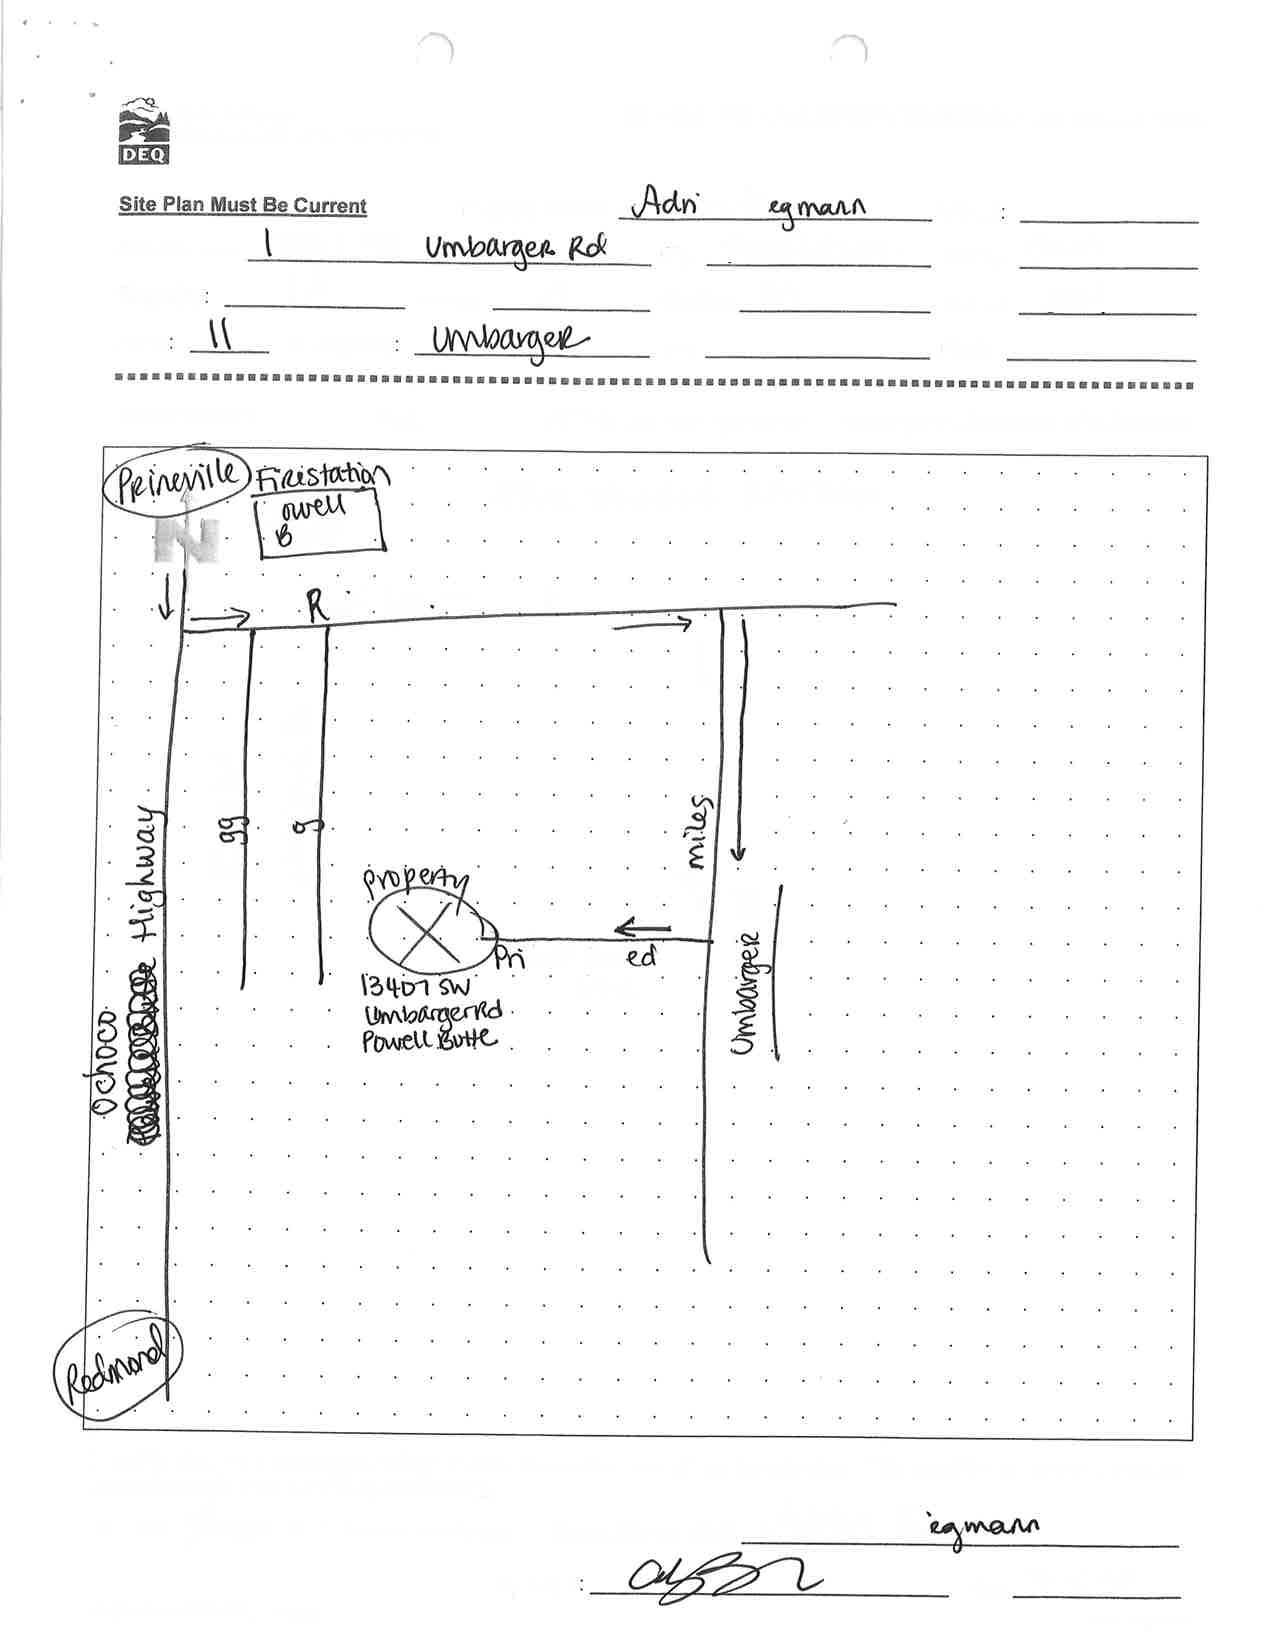 DEQ
Site Plan Must Be Current
Adri egmann :
1 Umbarger Rd
:
: 11 : Umbarger
Prineville Firestation
owell
B
N
R
gg
g
miles
Highway
Property
Pri
ed
Umbarger
13407 SW
Umbarger Rd
Powell Butte
Ochoco
Redmond
egmann
: